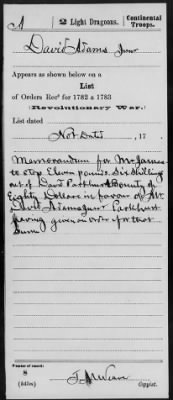 A
2 Light Dragoons.
Continental
Troops.
David Adams Junr
Appears as shown below on a
List
of Orders Recd for 1782 & 1783
(Revolutionary War.)
List dated
Not Dated, 17 .
Memorandum for Mr James
to stop Eleven pounds Six Shilling
out of David Parkhurst Bounty of
Eighty Dollars in favour of Mr.
David Adams Junr Parkhurst
having given an order for that
Sum
Number of record:
8
(545e)
Copyist.